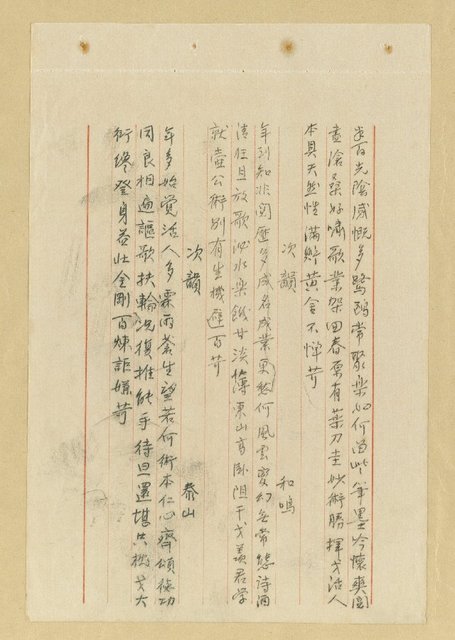 半百光陰感慨多鷺鷗常聚樂如何過些筆墨吟懷爽閱
盡滄桑好嘯歌業架回春原有藥刀圭妙術勝揮戈活人
本具天然性滿貯黃金不憚苛
次韻 和鳴
年到知非閱歷多成名成業更何風雲變幻無常態詩酒
清狂且放歌泌水樂飢甘淡薄東山高臥阻干戈羨君學
就壺公術別有生機闢百苛
次韻 泰山
年多始覺活人多霖雨蒼生望若何術本仁心齊頌德功
同良相遍謳歌扶輪況復推能手待旦還堪共枕戈大
衍終登身益壯金剛百煉詎嫌苛